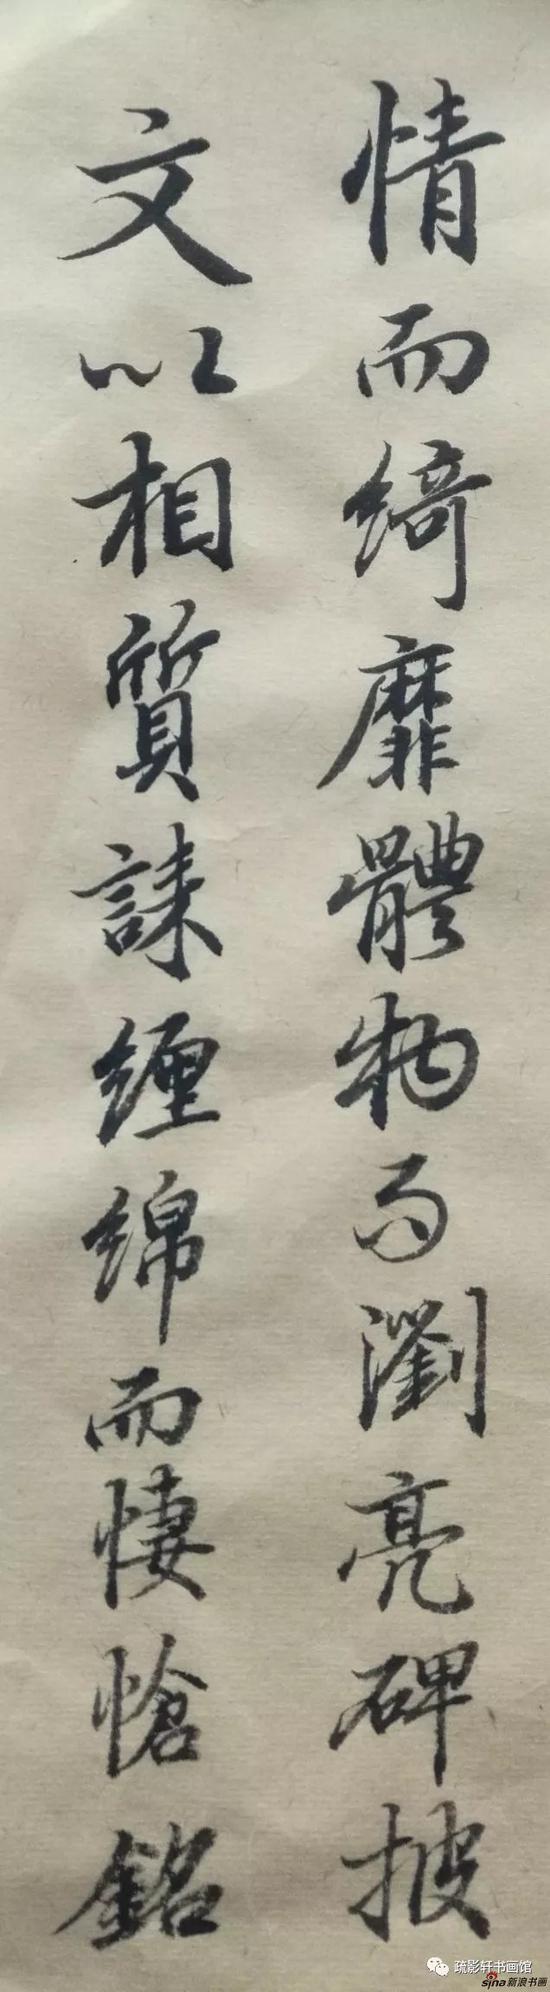 情而綺靡體物而瀏亮碑披
文以相質誄纏綿而悽愴銘
疏影轩书画馆
sina新浪书画